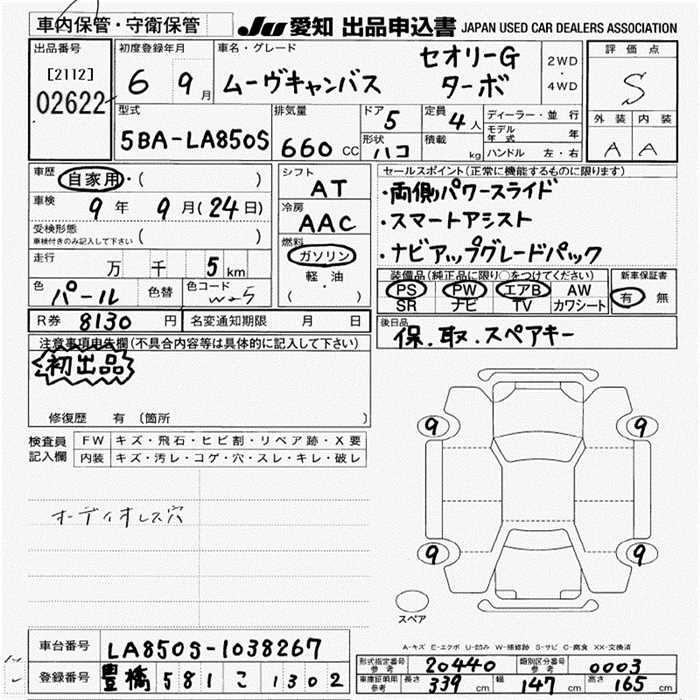 車内保管・守衛保管
JU 愛知 出品申込書 JAPAN USED CAR DEALERS ASSOCIATION
出品番号
[2112]
02622
初度登録年月
6 9月
車名・グレード
ムーヴキャンバス セオリーG ターボ
2WD ・ 4WD
評価点
S
外装 内装
A A
型式
5BA-LA850S
排気量
660 CC
ドア 5
形状 ハコ
定員 4 人
積載 kg
ディーラー・並行
モデル年式 年
ハンドル 左・右
車歴 自家用・( )
車検 9年 9月(24日)
受検形態
車検付きのみ記入して下さい ( )
走行 万 千 5 km
色 パール 色替 色コード W25
R券 8130 円 名変通知期限 月 日
シフト
AT
冷房
AAC
燃料
ガソリン
軽・油
( )
セールスポイント(正常に機能するものに限ります)
・両側パワースライド
・スマートアシスト
・ナビアップグレードパック
装備品(純正品に限り○をつけてください)
PS PW エアB AW
SR ナビ TV カワシート
新車保証書
有 無
後日品
保.取.スペアキー
注意事項申告欄(不具合内容等は具体的に記入して下さい)
初出品
修復歴 有 (箇所 )
検査員記入欄
FW キズ・飛石・ヒビ割・リペア跡・X要
内装 キズ・汚レ・コゲ・穴・スレ・キレ・破レ
オーディオレス穴
9 9
9 9
スペア
A-キズ E-エクボ U-凹み W-補修跡 S-サビ C-腐食 XX-交換済
車台番号 LA850S-1038267
登録番号 豊橋 581 こ 1302
形式指定番号 参考 20440 類別区分番号 参考 0003
車庫証明用 参考 長さ 339 cm 幅 147 cm 高さ 165 cm